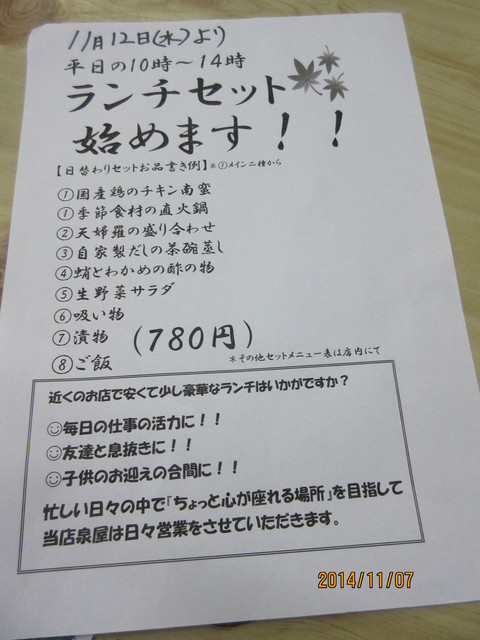 11月12日(水)より
平日の10時～14時
ランチセット
始めます！！
【日替わりセットお品書き例】*①メイン二種から
①国産鶏のチキン南蜜
①季節食材の直火鍋
②天婦羅の盛り合わせ
③自家製だしの茶碗蒸し
④蛸とわかめの酢の物
⑤生野菜サラダ
⑥吸い物
⑦漬物 (780円)
⑧ご飯 *その他セットメニュー表は店内にて
近くのお店で安くて少し豪華なランチはいかがですか？
☺毎日の仕事の活力に！！
☺友達と息抜きに！！
☺子供のお迎えの合間に！！
忙しい日々の中で『ちょっと心が座れる場所』を目指して
当店泉屋は日々営業をさせていただきます。
2014/11/07